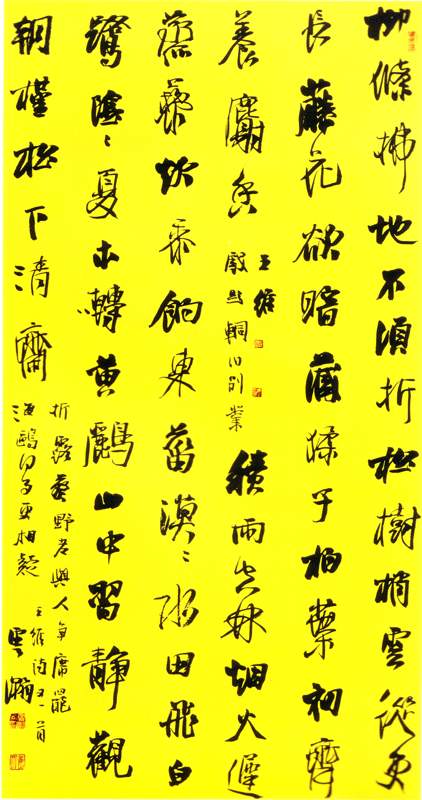 柳條拂地不須折松樹梢雲從更
長藤花欲暗藏猱子柏葉初齊
養麝香
王維
戲題輞川別業
積雨空林烟火遲
蒸藜炊黍餉東菑漠々水田飛白
鷺陰々夏木囀黃鸝山中習靜觀
朝槿松下清齋
折露葵野老與人爭席罷
海鷗何事更相疑
王維詩二首
雲瀚